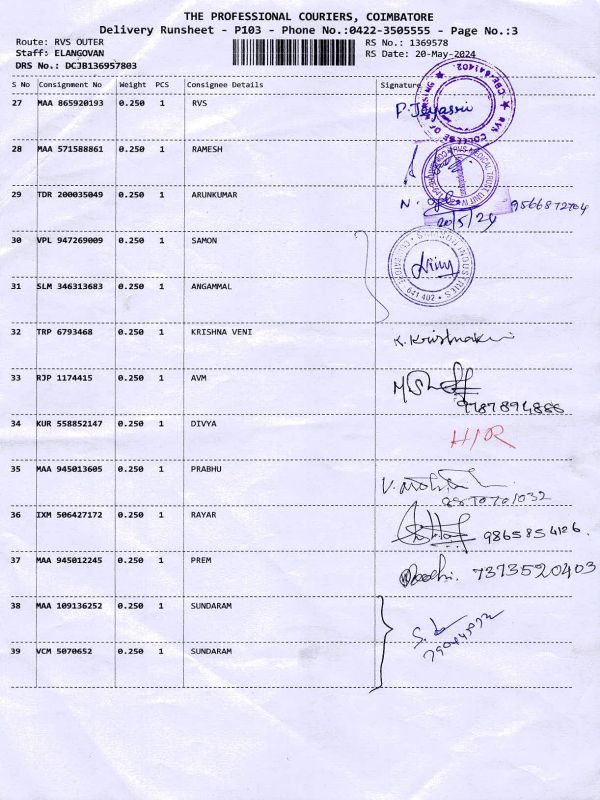 THE PROFESSIONAL COURIERS, COIMBATORE
Delivery Runsheet - P103 - Phone No.:0422-3505555 - Page No.:3
Route: RVS OUTER RS No.: 1369578
Staff: ELANGOVAN RS Date: 20-May-2024
DRS No.: DCJB136957803
S No Consignment No Weight PCS Consignee Details Signature
27 MAA 865920193 0.250 1 RVS P. Jeyasri
RVS COLLEGE OF NURSING CBE-641402
28 MAA 571588861 0.250 1 RAMESH
RVS MEDICAL TRUST UNIT
29 TDR 200035049 0.250 1 ARUNKUMAR N. 9566872704
20/5/24
30 VPL 947269009 0.250 1 SAMON
INDUSTRIES COIMBATORE 641 402
31 SLM 346313683 0.250 1 ANGAMMAL
32 TRP 6793468 0.250 1 KRISHNA VENI K. Krishnakumar
33 RJP 1174415 0.250 1 AVM
9787894886
34 KUR 558852147 0.250 1 DIVYA H/R
35 MAA 945013605 0.250 1 PRABHU
8870701032
36 IXM 506427172 0.250 1 RAYAR 9865854126.
37 MAA 945012245 0.250 1 PREM 7373520403
38 MAA 109136252 0.250 1 SUNDARAM
39 VCM 5070652 0.250 1 SUNDARAM